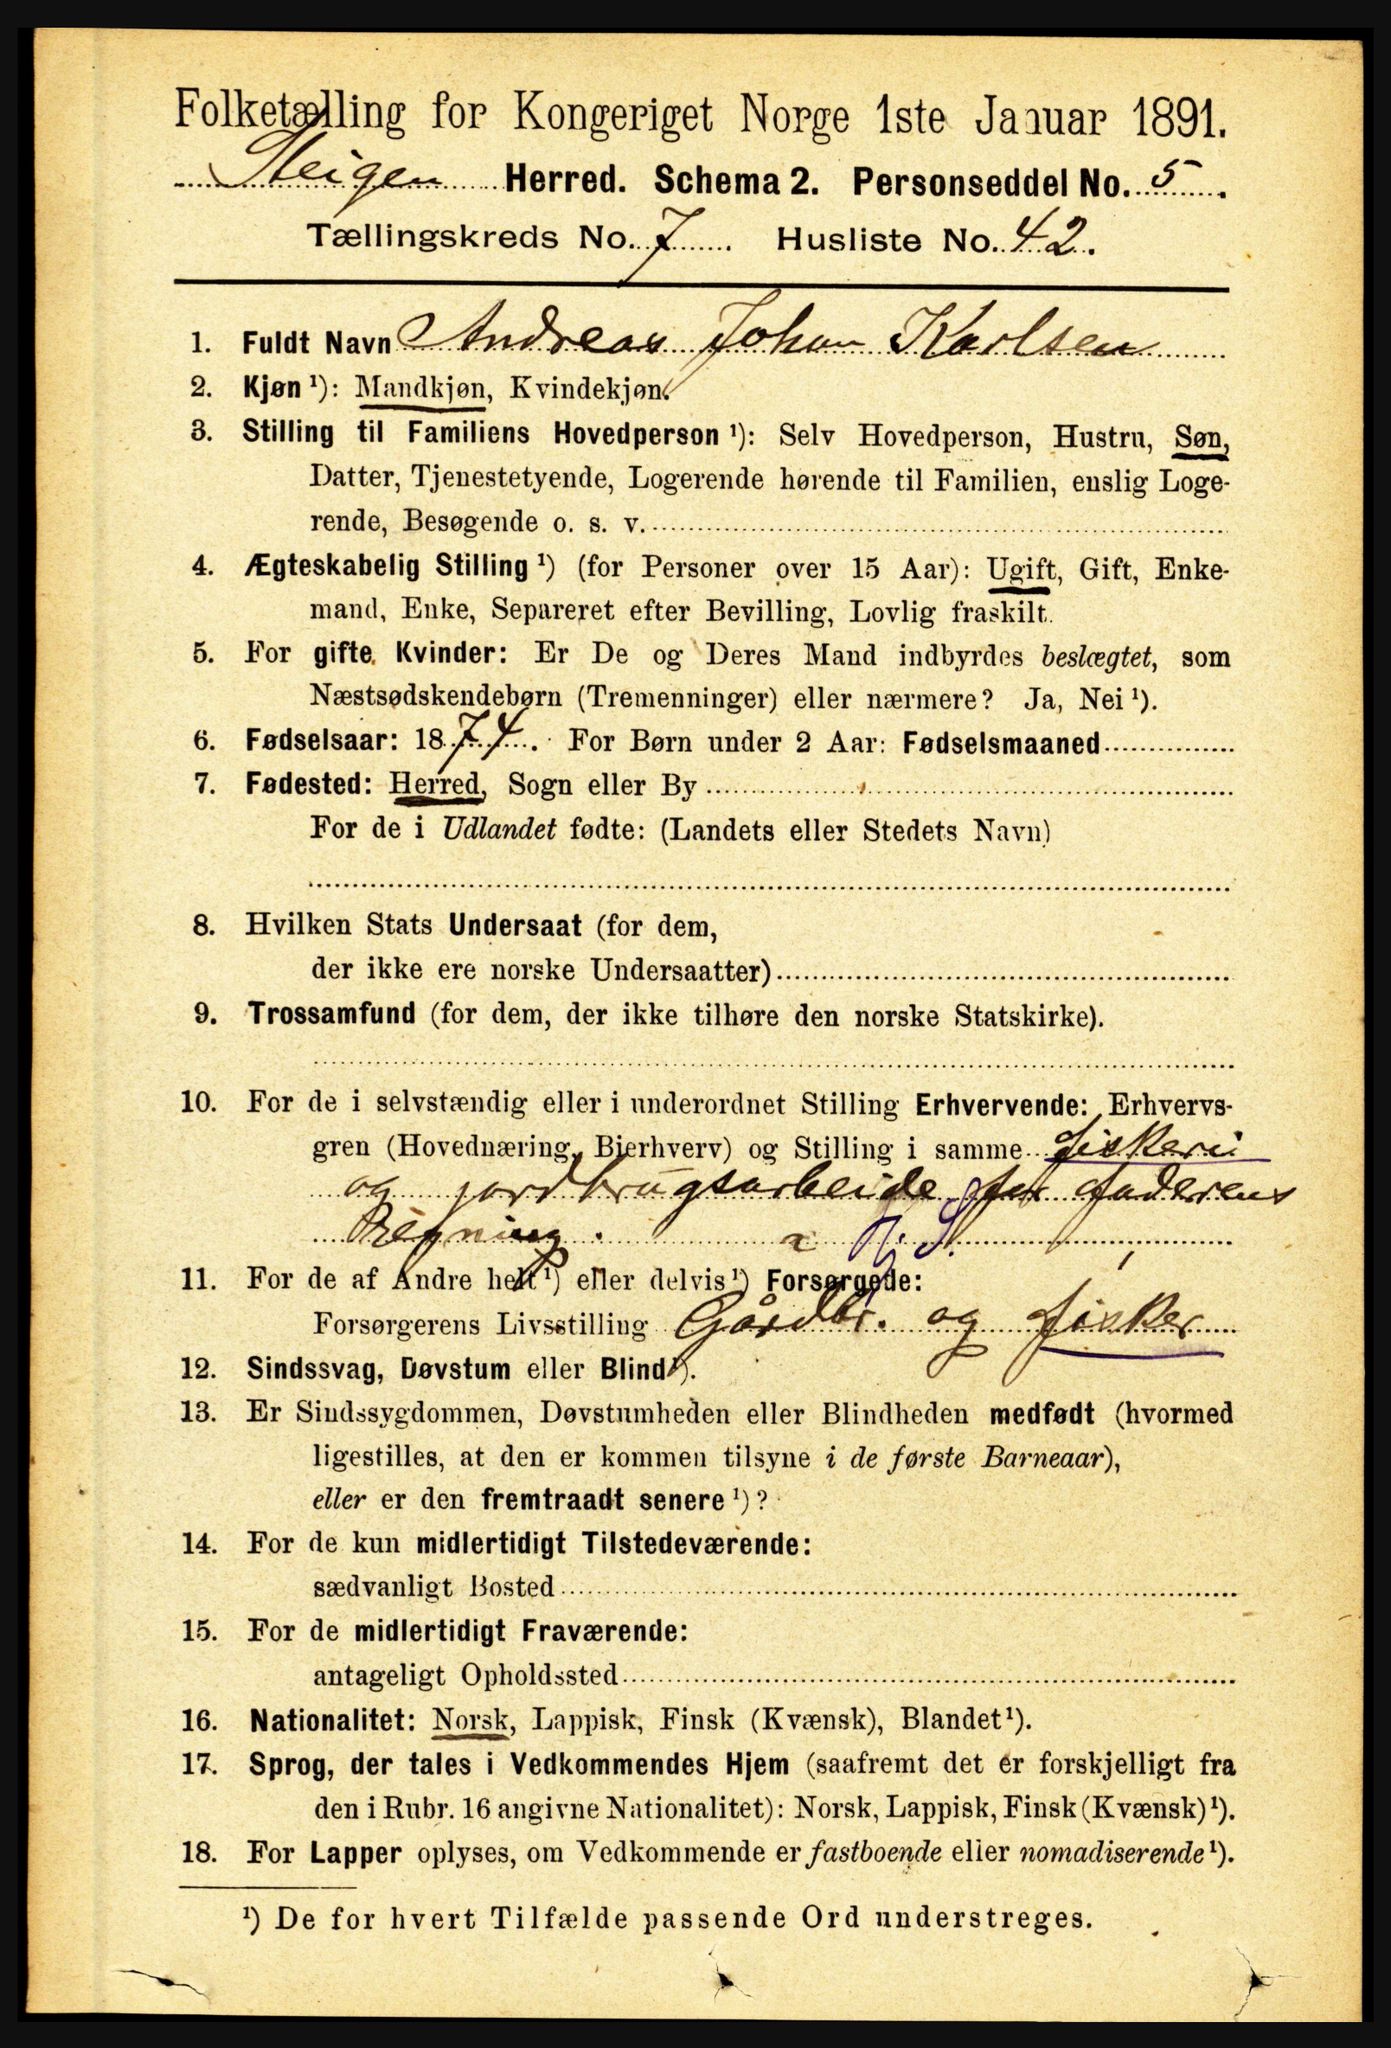 Folketælling for Kongeriget Norge 1ste Januar 1891.
Steigen Herred. Schema 2. Personseddel No. 5.
Tællingskreds No. 7. Husliste No. 42.
1. Fuldt Navn Andreas Johan Karlsen
2. Kjøn ¹): Mandkjøn, Kvindekjøn.
3. Stilling til Familiens Hovedperson ¹): Selv Hovedperson, Hustru, Søn,
Datter, Tjenestetyende, Logerende hørende til Familien, enslig Loge-
rende, Besøgende o. s. v.
4. Ægteskabelig Stilling ¹) (for Personer over 15 Aar): Ugift, Gift, Enke-
mand, Enke, Separeret efter Bevilling, Lovlig fraskilt.
5. For gifte Kvinder: Er De og Deres Mand indbyrdes beslægtet, som
Næstsødskendebørn (Tremenninger) eller nærmere? Ja, Nei ¹).
6. Fødselsaar: 1874. For Børn under 2 Aar: Fødselsmaaned
7. Fødested: Herred, Sogn eller By
For de i Udlandet fødte: (Landets eller Stedets Navn)
8. Hvilken Stats Undersaat (for dem,
der ikke ere norske Undersaatter)
9. Trossamfund (for dem, der ikke tilhøre den norske Statskirke).
10. For de i selvstændig eller i underordnet Stilling Erhvervende: Erhvervs-
gren (Hovednæring, Bierhverv) og Stilling i samme fiskeri
og jordbrugsarbeide for faderens
Regning. a S.
11. For de af Andre helt ¹) eller delvis ¹) Forsørgede:
Forsørgerens Livsstilling Gårdbr. og fisker
12. Sindssvag, Døvstum eller Blind ¹).
13. Er Sindssygdommen, Døvstumheden eller Blindheden medfødt (hvormed
ligestilles, at den er kommen tilsyne i de første Barneaar),
eller er den fremtraadt senere ¹)?
14. For de kun midlertidigt Tilstedeværende:
sædvanligt Bosted
15. For de midlertidigt Fraværende:
antageligt Opholdssted
16. Nationalitet: Norsk, Lappisk, Finsk (Kvænsk), Blandet ¹).
17. Sprog, der tales i Vedkommendes Hjem (saafremt det er forskjelligt fra
den i Rubr. 16 angivne Nationalitet): Norsk, Lappisk, Finsk (Kvænsk) ¹).
18. For Lapper oplyses, om Vedkommende er fastboende eller nomadiserende ¹).
¹) De for hvert Tilfælde passende Ord understreges.